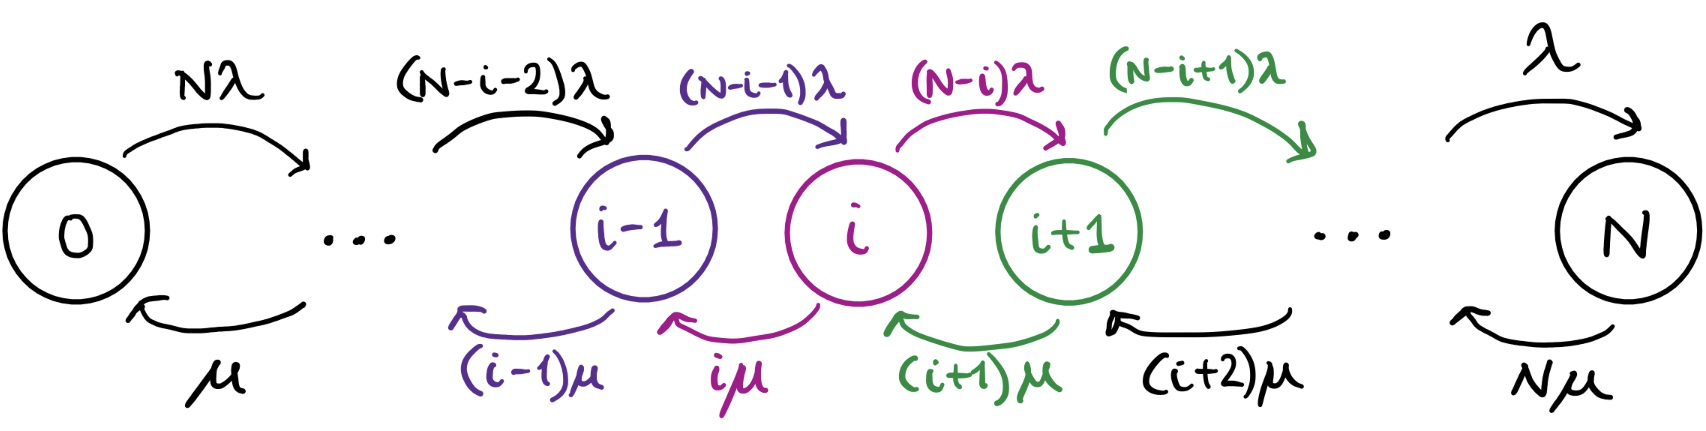 Nλ (N-i-2)λ (N-i-1)λ (N-i)λ (N-i+1)λ λ
0 ... i-1 i i+1 ... N
μ (i-1)μ iμ (i+1)μ (i+2)μ Nμ